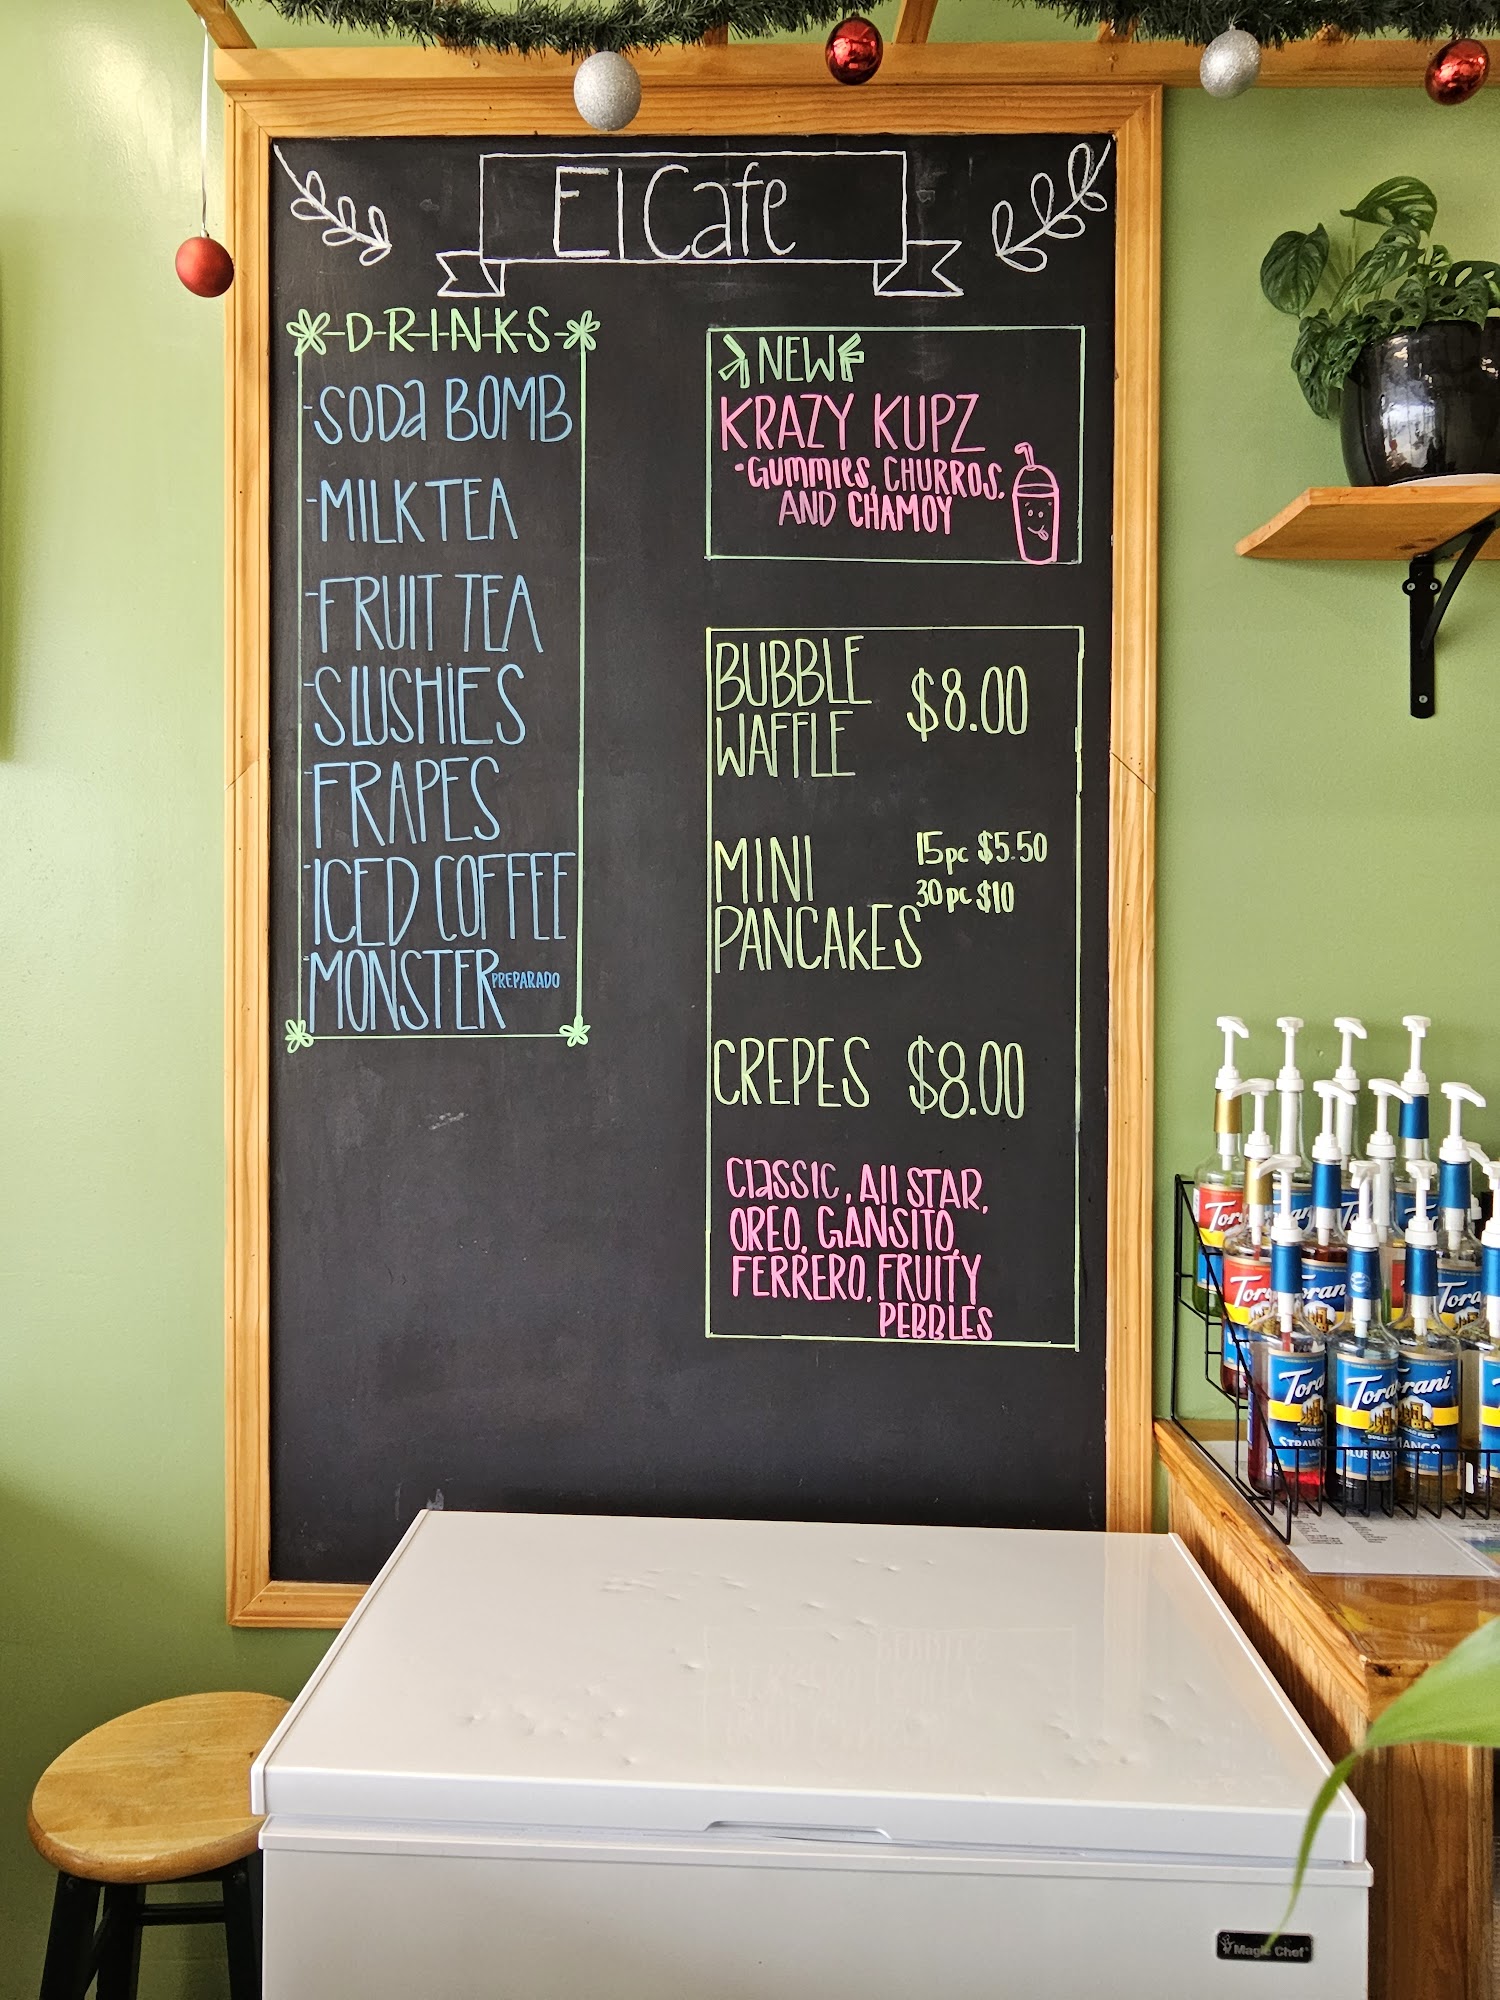 El Cafe
DRINKS
-SODa BOMB
-MILK TEA
-FRUIT TEA
-SLUSHIES
-FRAPES
-ICED COFFEE
-MONSTER PREPARADO
NEW
KRAZY KUPZ
-Gummies, CHURROS,
AND CHAMOY
BUBBLE
WAFFLE
$8.00
MINI
PANCAKES
15pc $5.50
30pc $10
CREPES $8.00
Classic, All STAR,
OREO, GANSITO,
FERRERO, FRUITY
PEBBLES
Torani
MANGO
Magic Chef